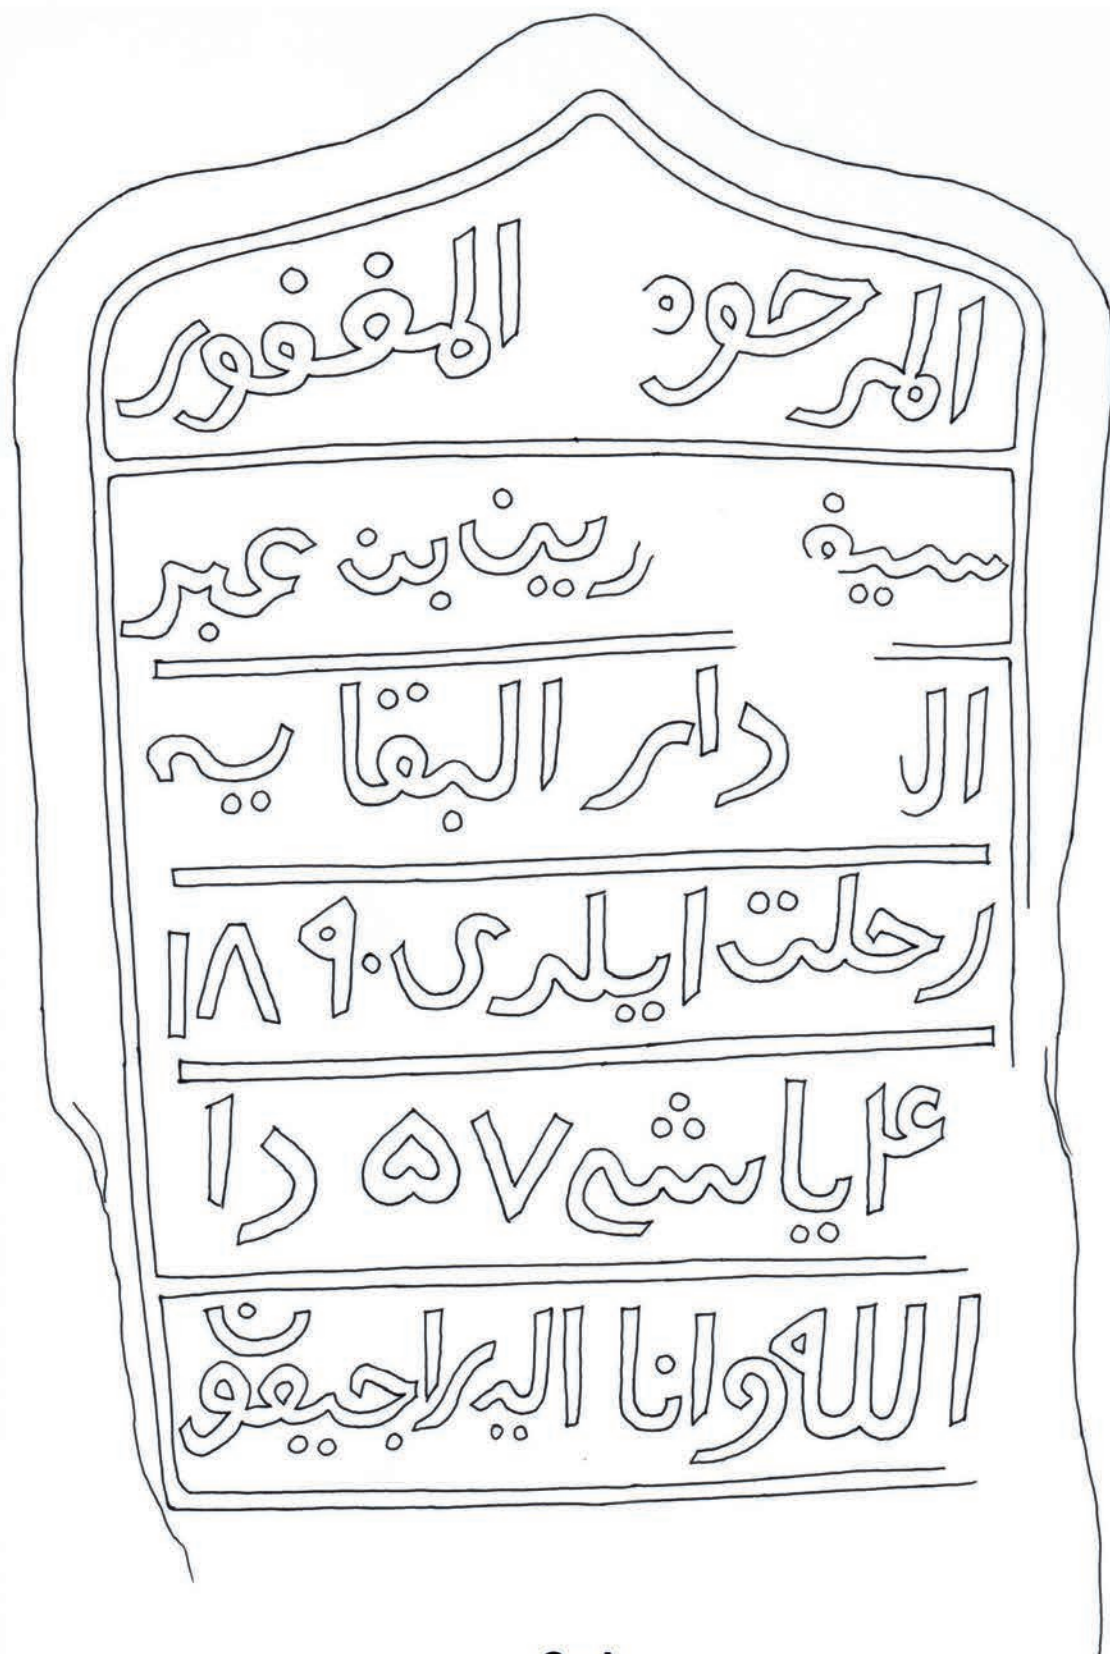 المرحوم المغفور
سيف رين بن عبر
ال دار البقا يه
رحلت ايلدى ١٨٩٠
٤ ياشى ٥٧ دا
الله وانا اليه راجيعون